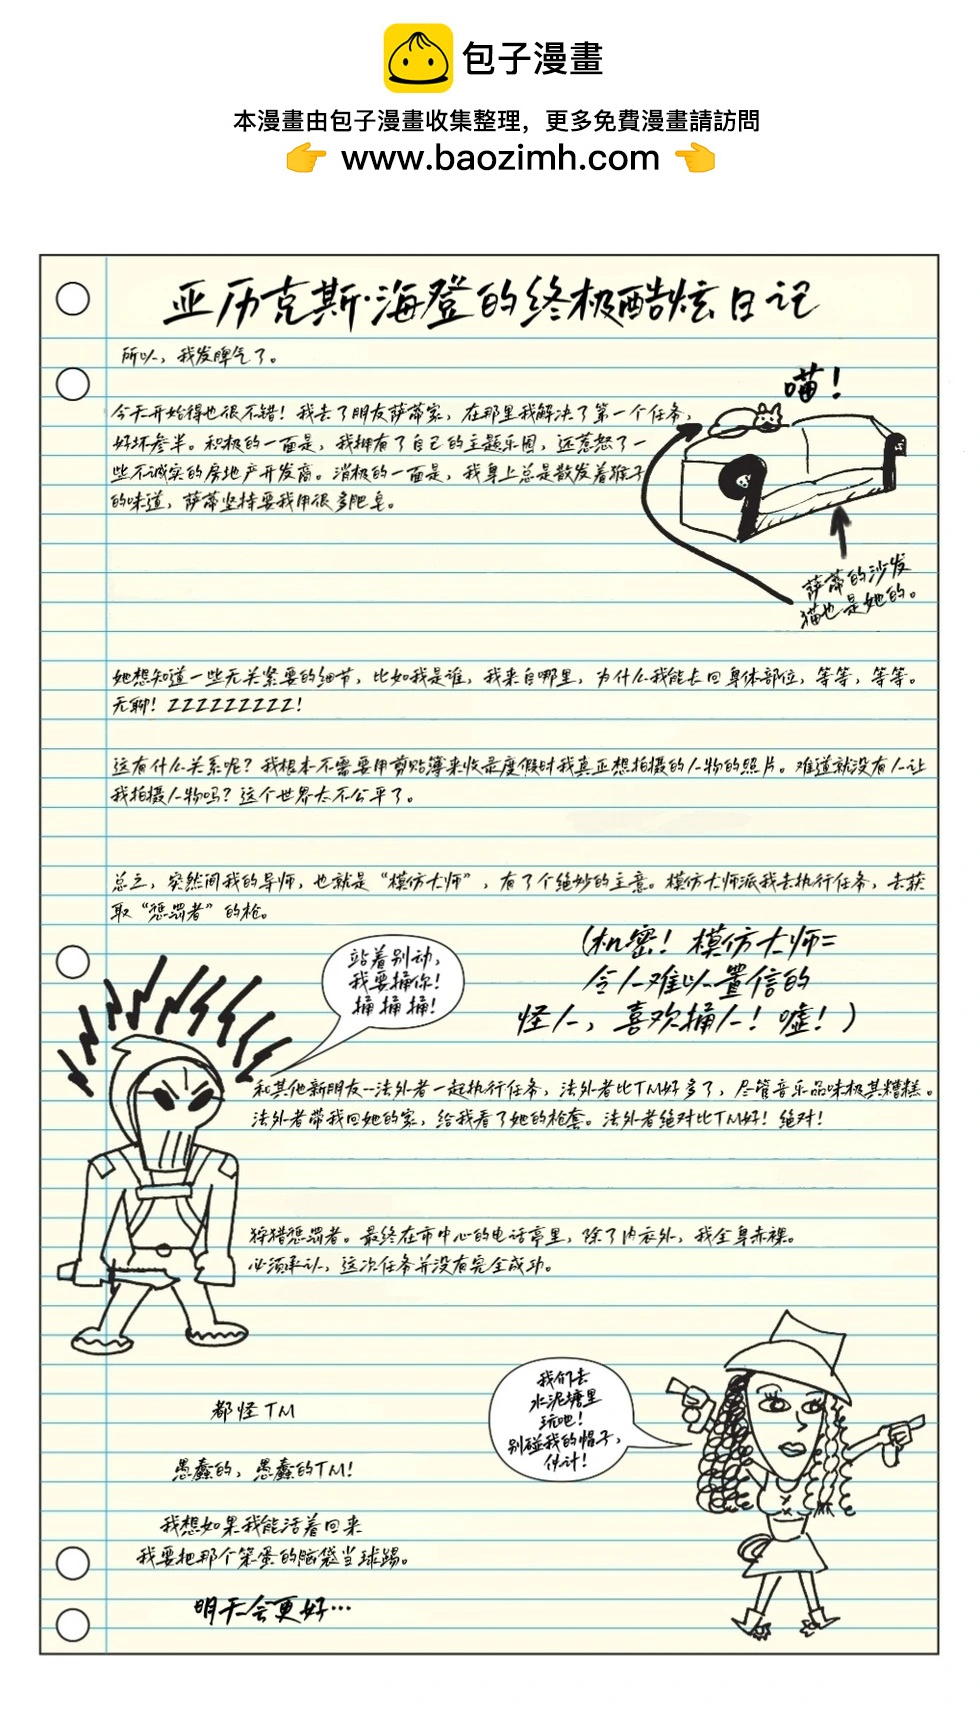 包子漫畫
本漫畫由包子漫畫收集整理，更多免費漫畫請訪問
www.baozimh.com
亚历克斯·海登的终极酷炫日记
所以，我发脾气了。
喵！
今天开始得也很不错！我去了朋友萨蒂家，在那里我解决了第一个任务，
好坏参半。积极的一面是，我拥有了自己的主题乐园，还惹怒了一
些不诚实的房地产开发商。消极的一面是，我身上总是散发着猴子
的味道，萨蒂坚持要我用很多肥皂。
萨蒂的沙发
猫也是她的。
她想知道一些无关紧要的细节，比如我是谁，我来自哪里，为什么我能长回身体部位，等等，等等。
无聊！ZZZZZZZZZ！
这有什么关系呢？我根本不需要用剪贴簿来收录度假时我真正想拍摄的人物的照片。难道就没有人让
我拍摄人物吗？这个世界太不公平了。
总之，突然间我的导师，也就是“模仿大师”，有了个绝妙的主意。模仿大师派我去执行任务，去获
取“惩罚者”的枪。
（机密！模仿大师=
令人难以置信的
怪人，喜欢捅人！嘘！）
站着别动，
我要捅你！
捅捅捅！
和其他新朋友--法外者一起执行任务，法外者比TM好多了，尽管音乐品味极其糟糕。
法外者带我回她的家，给我看了她的枪套。法外者绝对比TM好！绝对！
狩猎惩罚者。最终在市中心的电话亭里，除了内衣外，我全身赤裸。
必须承认，这次任务并没有完全成功。
我们去
水泥塘里
玩吧！
别碰我的帽子，
伙计！
都怪TM
愚蠢的，愚蠢的TM！
我想如果我能活着回来
我要把那个笨蛋的脑袋当球踢。
明天会更好…